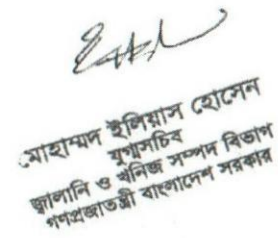 মোহাম্মদ ইলিয়াস হোসেন
যুগ্মসচিব
জ্বালানি ও খনিজ সম্পদ বিভাগ
গণপ্রজাতন্ত্রী বাংলাদেশ সরকার